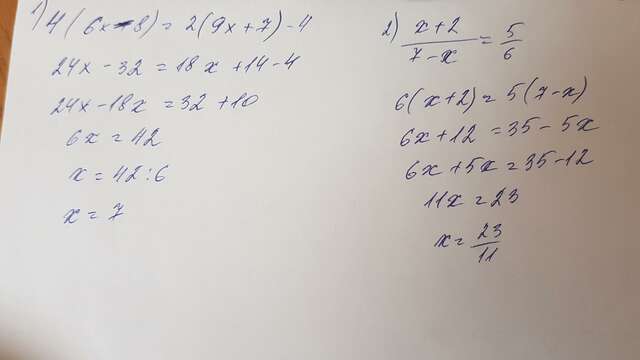 1) 4(6x-8) = 2(9x+7)-4
24x - 32 = 18x + 14 - 4
24x - 18x = 32 + 10
6x = 42
x = 42 : 6
x = 7
2) x+2 / 7-x = 5 / 6
6(x+2) = 5(7-x)
6x + 12 = 35 - 5x
6x + 5x = 35 - 12
11x = 23
x = 23 / 11